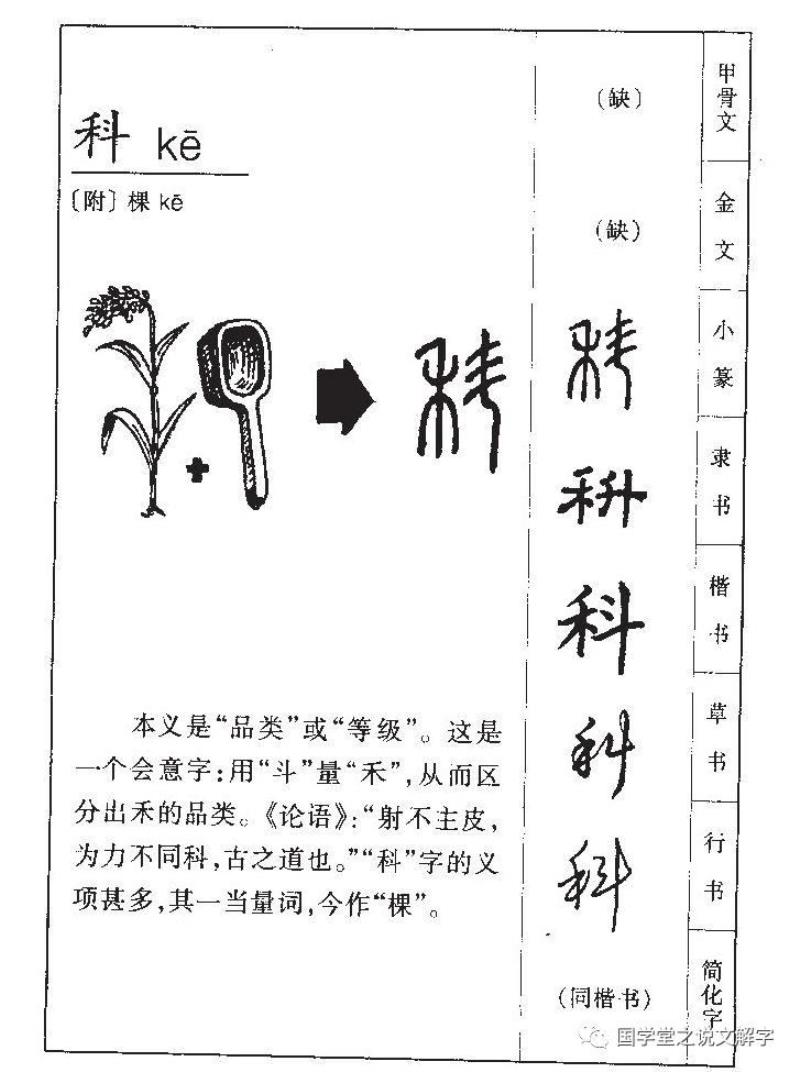 科 kē
〔附〕棵 kē
本义是“品类”或“等级”。这是
一个会意字：用“斗”量“禾”，从而区
分出禾的品类。《论语》：“射不主皮，
为力不同科，古之道也。”“科”字的义
项甚多，其一当量词，今作“棵”。
（缺）
甲骨文
（缺）
金文
科
小篆
科
隶书
科
楷书
科
草书
科
行书
（同楷书）
简化字
国学堂之说文解字